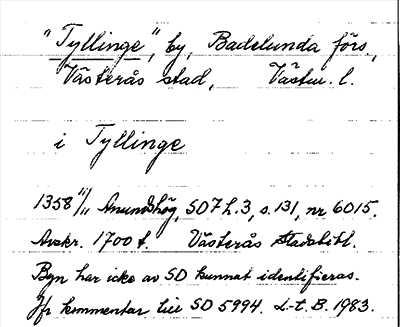 "Tyllinge", by, Badelunda förs.,
Västerås stad, Västm. l.
i Tyllinge
1358 11/11 Anundshög, SD7 h.3, s.131, nr 6015.
Avskr. 1700 t. Västerås Stadsbibl.
Byn har icke av SD kunnat identifieras.
Jfr kommentar till SD 5994. L-t. B. 1983.